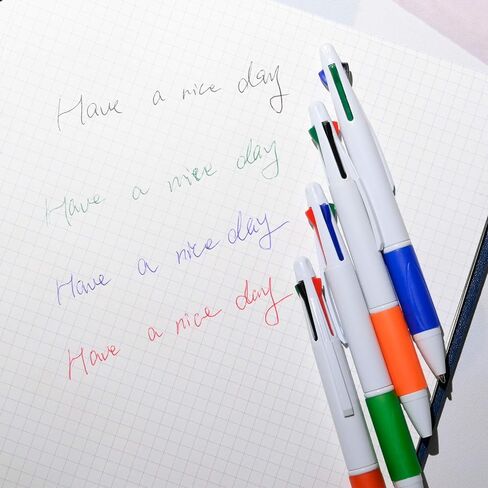 Have a nice day
Have a nice day
Have a nice day
Have a nice day